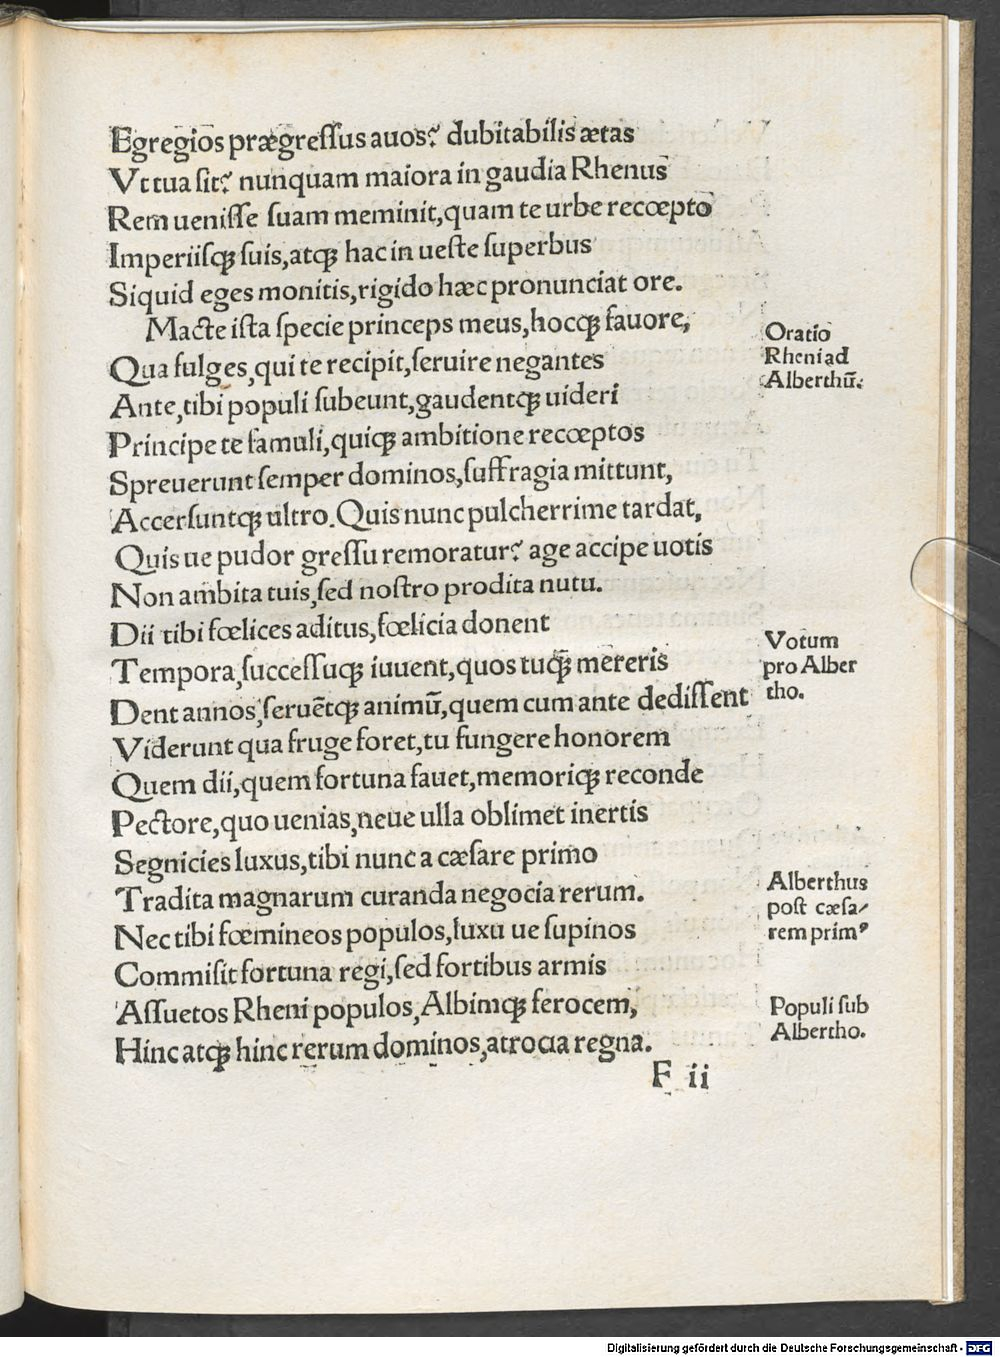 Egregios prægressus auos? dubitabilis ætas
Vt tua sit? nunquam maiora in gaudia Rhenus
Rem uenisse suam meminit, quam te urbe recœpto
Imperiisqꝫ suis, atqꝫ hac in ueste superbus
Siquid eges monitis, rigido hæc pronunciat ore.
Macte ista specie princeps meus, hocqꝫ fauore,
Oratio
Rheni ad
Alberthū.
Qua fulges, qui te recipit, seruire negantes
Ante, tibi populi subeunt, gaudentqꝫ uideri
Principe te famuli, quiqꝫ ambitione recœptos
Spreuerunt semper dominos, suffragia mittunt,
Accersuntqꝫ ultro. Quis nunc pulcherrime tardat,
Quis ue pudor gressu remoratur? age accipe uotis
Non ambita tuis, sed nostro prodita nutu.
Dii tibi fœlices aditus, fœlicia donent
Votum
pro Alber
tho.
Tempora, successuqꝫ iuuent, quos tuqꝫ mereris
Dent annos, seruētqꝫ animū, quem cum ante dedissent
Viderunt qua fruge foret, tu fungere honorem
Quem dii, quem fortuna fauet, memoriqꝫ reconde
Pectore, quo uenias, neue ulla oblimet inertis
Segnicies luxus, tibi nunc a cæsare primo
Alberthus
post cæsa-
rem primꝰ
Tradita magnarum curanda negocia rerum.
Nec tibi fœmineos populos, luxu ue supinos
Commisit fortuna regi, sed fortibus armis
Assuetos Rheni populos, Albimqꝫ ferocem,
Populi sub
Albertho.
Hinc atqꝫ hinc rerum dominos, atrocia regna.
F ii
Digitalisierung gefördert durch die Deutsche Forschungsgemeinschaft - DFG